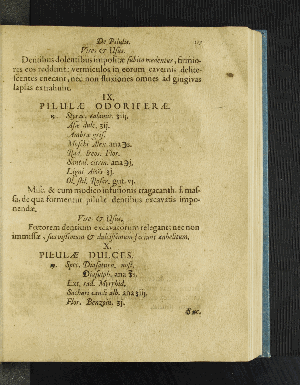 De Pilulis.
Vires & Usus.
Dentibus dolentibus impositæ subito movenur, firmio-
res eos reddunt: vermiculos in eorum cavernis delite-
scentes enecant, nec non fluxiones omnes ad gingivas
lapsas extrahunt.
IX.
PILULÆ ODORIFERÆ.
Styrac. calamit.
Asæ dulc. ʒij.
Ambræ gris.
Moschi Alex. ana
Rad. Ireos Flor.
Santal. citrin. ana
Ligni Aloës ʒj.
Ol. stil. Rosar. gut. vj.
Misc. & cum modico infusionis tragacanth. f. mas-
sa, de qua formentur pilulæ dentibus excavatis impo-
nendæ.
Vires & Usus.
Fœtorem dentium excavatorum relegant: nec non
immissæ suavissimum & dulcissimum faciunt anhelitum.
X.
PILULÆ DULCES.
Spec. Diasatyr.
ana
Ext. rad.
Sachari candi alb. ana ʒiij.
Flor. Benzoin. ʒj.